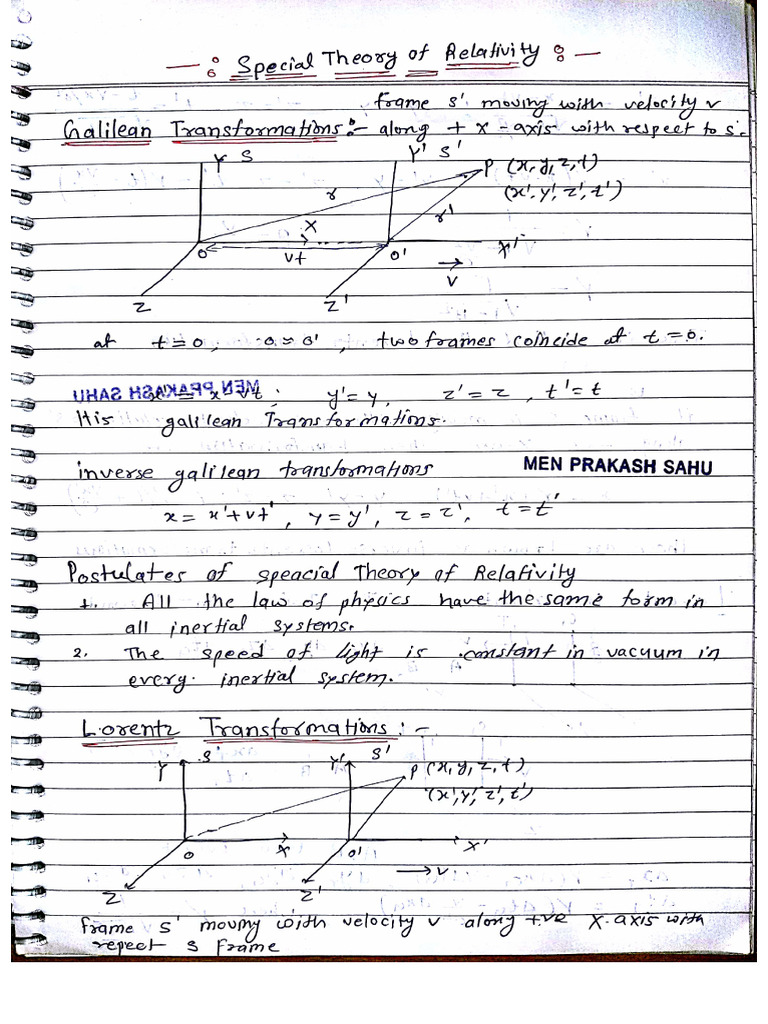 —: Special Theory of Relativity :—
frame s' moving with velocity v
Galilean Transformations:- along + x - axis with respect to s.
Y S Y' S' P (x, y, z, t)
(x', y', z', t')
r r'
X X'
O vt O'
v
Z Z'
at t=0, O=O', two frames coincide at t=0.
MEN PRAKASH SAHU
y'=y, z'=z, t'=t
galilean Transformations.
inverse galilean transformations MEN PRAKASH SAHU
x= x'+vt', y=y', z=z', t=t'
Postulates of speacial Theory of Relativity
1. All the law of physics have the same form in
all inertial systems.
2. The speed of light is constant in vacuum in
every inertial system.
Lorentz Transformations:-
Y S' Y' S' P (x, y, z, t)
(x', y', z', t')
O X O' X'
v
Z Z'
frame s' moving with velocity v along +ve X-axis with
repect s frame